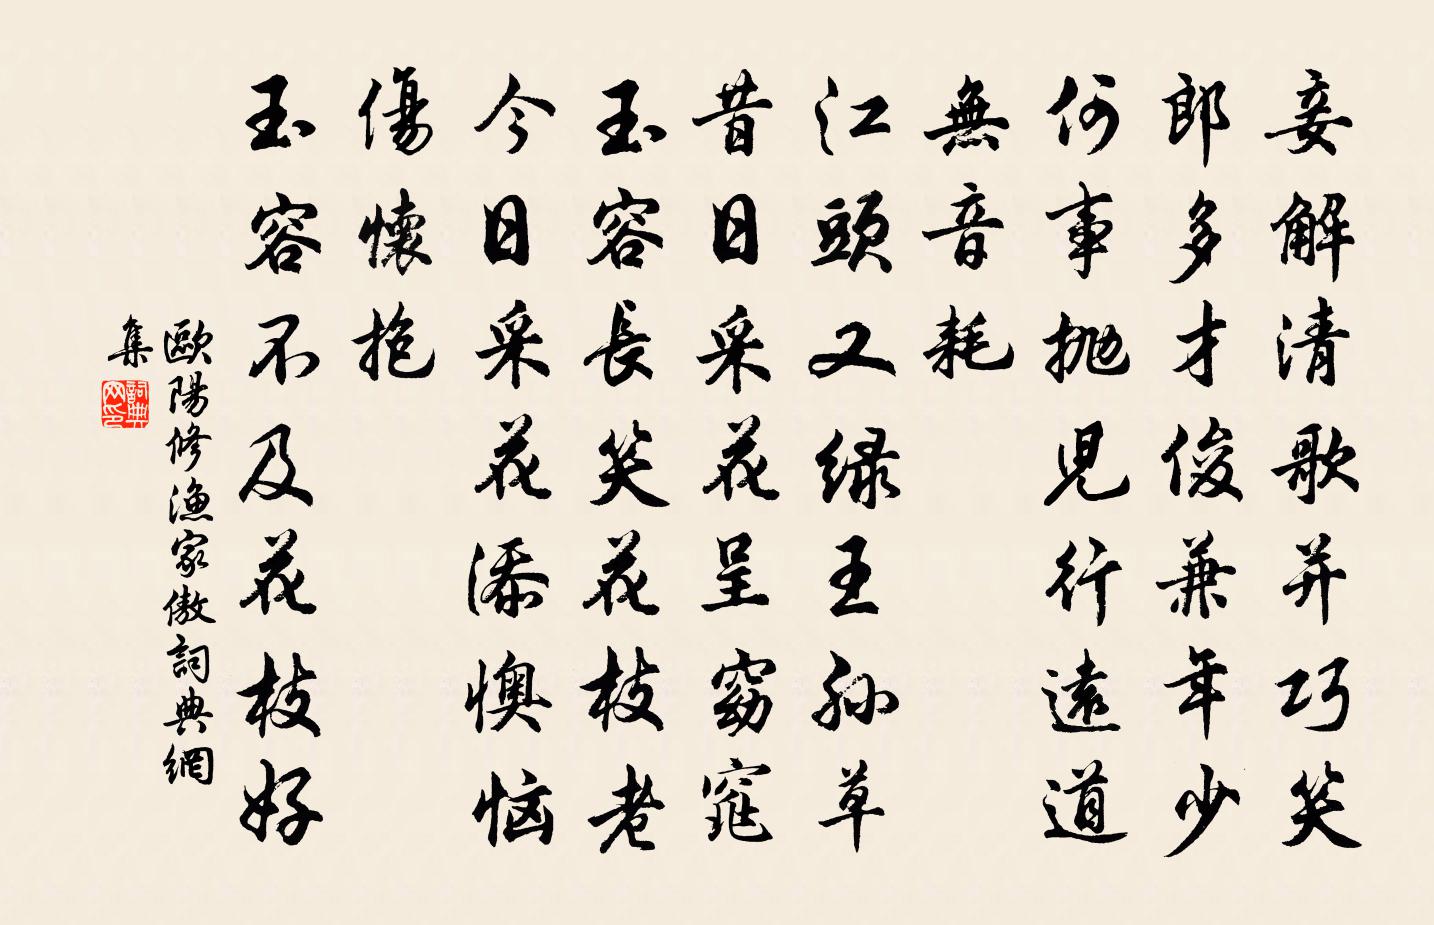 妾解清歌并巧笑
郎多才俊兼年少
何事抛兒行遠道
無音耗
江頭又绿王孙草
昔日采花呈窈窕
玉容長笑花枝老
今日采花添懊恼
傷懷抱
玉容不及花枝好
歐陽修漁家傲詞典網
集
詞典
网印